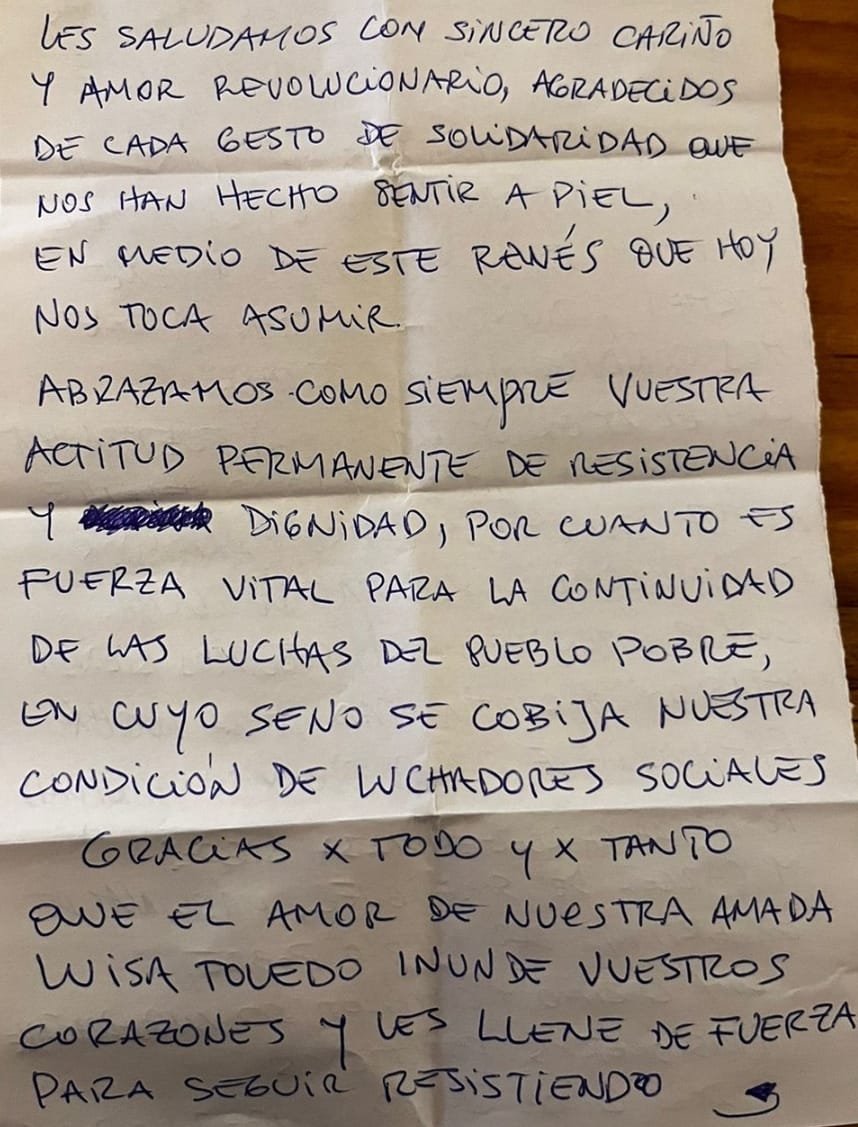 LES SALUDAMOS CON SINCERO CARIÑO
Y AMOR REVOLUCIONARIO, AGRADECIDOS
DE CADA GESTO DE SOLIDARIDAD QUE
NOS HAN HECHO SENTIR A PIEL,
EN MEDIO DE ESTE REVÉS QUE HOY
NOS TOCA ASUMIR.
ABRAZAMOS COMO SIEMPRE VUESTRA
ACTITUD PERMANENTE DE RESISTENCIA
Y DIGNIDAD, POR CUANTO ES
FUERZA VITAL PARA LA CONTINUIDAD
DE LAS LUCHAS DEL PUEBLO POBRE,
EN CUYO SENO SE COBIJA NUESTRA
CONDICIÓN DE LUCHADORES SOCIALES
GRACIAS X TODO Y X TANTO
QUE EL AMOR DE NUESTRA AMADA
LUISA TOLEDO INUNDE VUESTROS
CORAZONES Y LES LLENE DE FUERZA
PARA SEGUIR RESISTIENDO